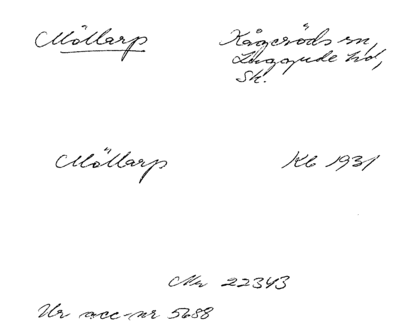 Möllarp Kågeröds sn,
Luggude hd,
Sk.
Möllarp Kb 1931
Nr 22343
Ur acc-nr 5688